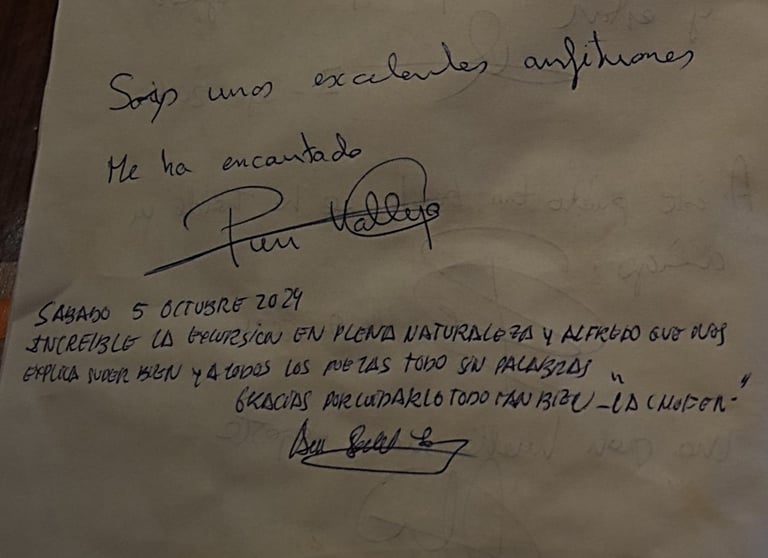 Sois unos excelentes anfitriones
Me ha encantado
Vallejo
SABADO 5 OCTUBRE 2024
INCREIBLE LA EXCURSION EN PLENA NATURALEZA Y ALFREDO QUE NOS
EXPLICA SUPER BIEN Y A TODOS LOS POETAS TODO SIN PALABRAS
GRACIAS POR CUIDARLO TODO TAN BIEN - "LA CHOFER-"